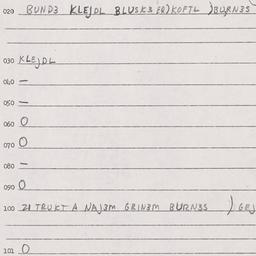 020 BUNDƎ KLEJDL BLUSKƎ FR)KOFTL )BURNƎS
030 KLEJDL
040 —
050 —
060 O
070 O
080 —
090 O
100 TRUKT A NAJƎM GRINƎM BURNƎS )
101 O